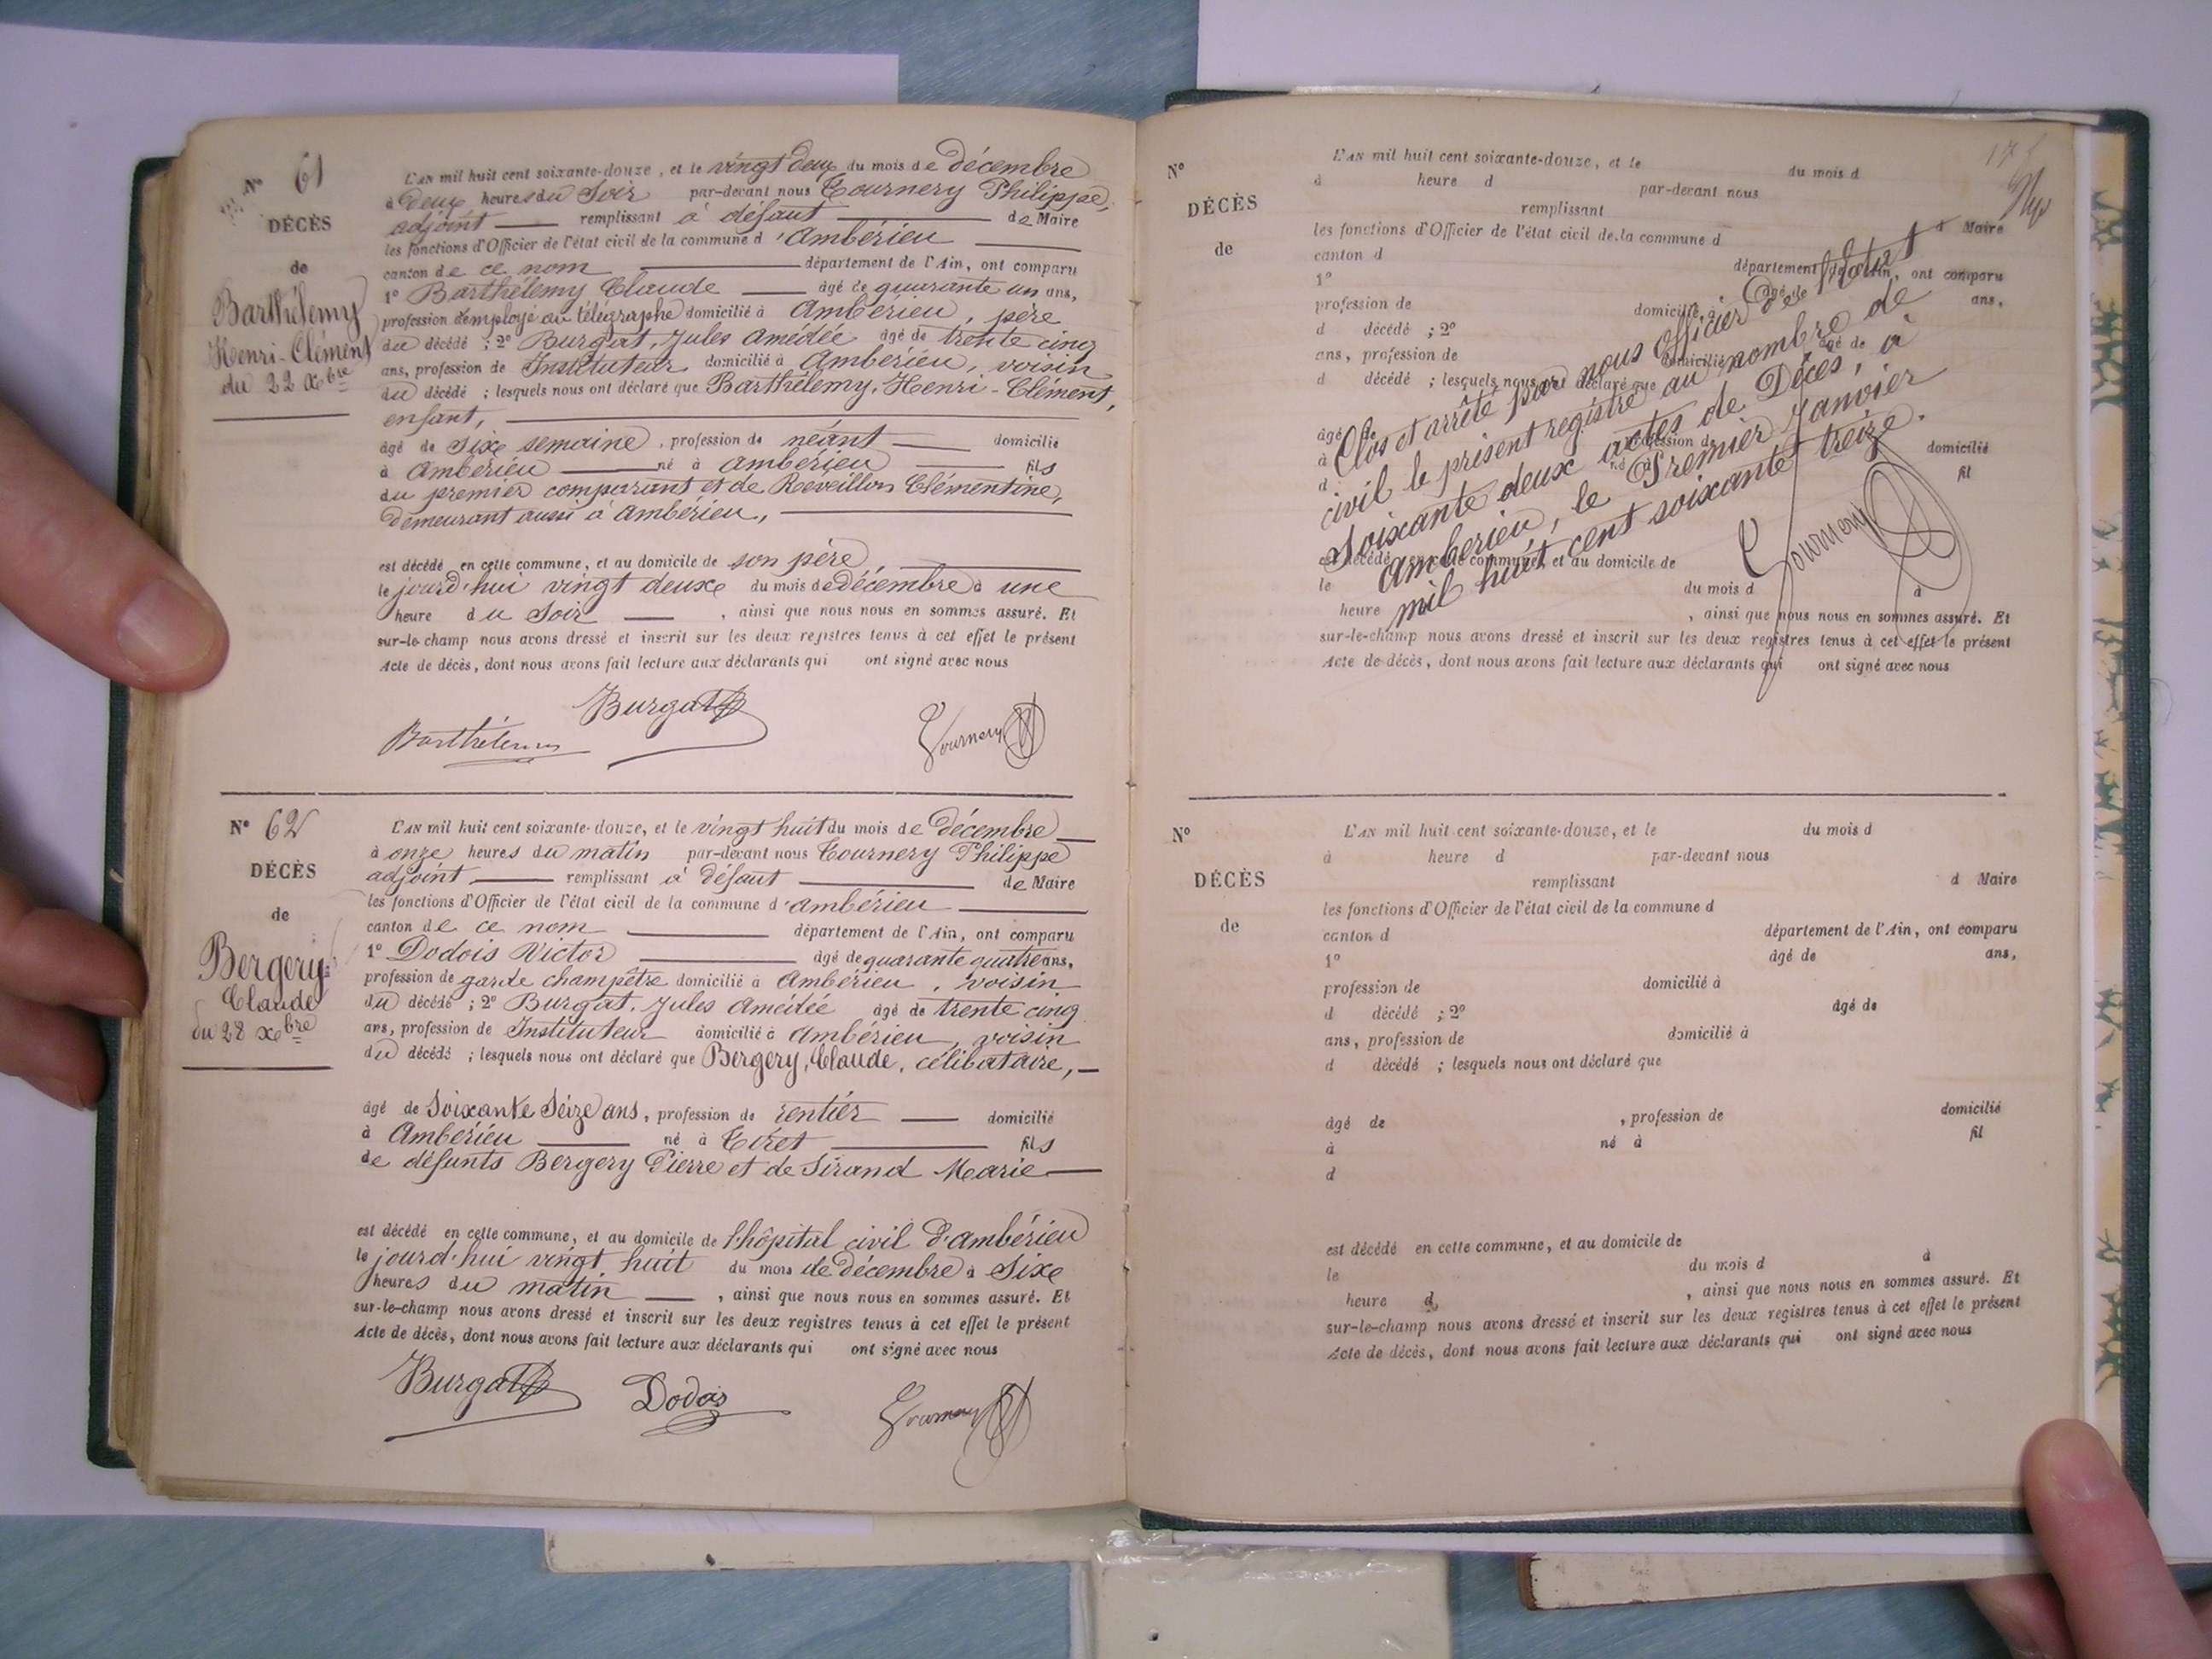 Nº 61
DÉCÈS
de
Barthélemy
Henri-Clément
du 22 Xbre
L'AN mil huit cent soixante-douze, et le vingt deux du mois de décembre
à deux heures du soir par-devant nous Tournery Philippe,
adjoint remplissant à défaut de Maire
les fonctions d'Officier de l'état civil de la commune d'Ambérieu
canton de ce nom département de l'Ain, ont comparu
1º Barthélemy Claude âgé de quarante un ans,
profession d'employé au télégraphe domicilié à Ambérieu, père
du décédé ; 2º Burgat, Jules Amédée âgé de trente cinq
ans, profession de Instituteur domicilié à Ambérieu, voisin
du décédé ; lesquels nous ont déclaré que Barthélemy, Henri-Clément,
enfant,
âgé de sixe semaine, profession de néant domicilié
à Ambérieu né à Ambérieu fils
du premier comparant et de Reveillon Clémentine,
demeurant aussi à Ambérieu,
est décédé en cette commune, et au domicile de son père
le jourd'hui vingt deuxe du mois de décembre à une
heure du soir, ainsi que nous nous en sommes assuré. Et
sur-le-champ nous avons dressé et inscrit sur les deux registres tenus à cet effet le présent
Acte de décès, dont nous avons fait lecture aux déclarants qui ont signé avec nous
Burgat
Barthélemy
Tournery
Nº 62
DÉCÈS
de
Bergery
Claude
du 28 Xbre
L'AN mil huit cent soixante-douze, et le vingt huit du mois de décembre
à onze heures du matin par-devant nous Tournery Philippe
adjoint remplissant à défaut de Maire
les fonctions d'Officier de l'état civil de la commune d'Ambérieu
canton de ce nom département de l'Ain, ont comparu
1º Dodois Victor âgé de quarante quatre ans,
profession de garde champêtre domicilié à Ambérieu, voisin
du décédé ; 2º Burgat, Jules Amédée âgé de trente cinq
ans, profession de Instituteur domicilié à Ambérieu, voisin
du décédé ; lesquels nous ont déclaré que Bergery, Claude, célibataire,
âgé de Soixante Seize ans, profession de rentier domicilié
à Ambérieu né à Tiret fils
de défunts Bergery Pierre et de Sirand Marie
est décédé en cette commune, et au domicile de l'hôpital civil d'Ambérieu
le jourd'hui vingt huit du mois de décembre à sixe
heures du matin, ainsi que nous nous en sommes assuré. Et
sur-le-champ nous avons dressé et inscrit sur les deux registres tenus à cet effet le présent
Acte de décès, dont nous avons fait lecture aux déclarants qui ont signé avec nous
Burgat Dodois Tournery
Nº
DÉCÈS
de
L'AN mil huit cent soixante-douze, et le du mois d
à heure d par-devant nous
remplissant d Maire
les fonctions d'Officier de l'état civil de la commune d
canton d département de l'Ain, ont comparu
1º âgé de ans,
profession de domicilié à
d décédé ; 2º âgé de
ans, profession de domicilié à
d décédé ; lesquels nous ont déclaré que
âgé de profession de domicilié
à né à fil
d
Clos et arrêté par nous officier de l'état
civil le présent registre au nombre de
Soixante deux actes de Décès, à
Ambérieu, le Premier Janvier
mil huit cent soixante treize.
Tournery
est décédé en cette commune, et au domicile de
le du mois d à
heure , ainsi que nous nous en sommes assuré. Et
sur-le-champ nous avons dressé et inscrit sur les deux registres tenus à cet effet le présent
Acte de décès, dont nous avons fait lecture aux déclarants qui ont signé avec nous
Nº
DÉCÈS
de
L'AN mil huit cent soixante-douze, et le du mois d
à heure d par-devant nous
remplissant d Maire
les fonctions d'Officier de l'état civil de la commune d
canton d département de l'Ain, ont comparu
1º âgé de ans,
profession de domicilié à
d décédé ; 2º âgé de
ans, profession de domicilié à
d décédé ; lesquels nous ont déclaré que
âgé de , profession de domicilié
à né à fil
d
est décédé en cette commune, et au domicile de
le du mois d à
heure d , ainsi que nous nous en sommes assuré. Et
sur-le-champ nous avons dressé et inscrit sur les deux registres tenus à cet effet le présent
Acte de décès, dont nous avons fait lecture aux déclarants qui ont signé avec nous